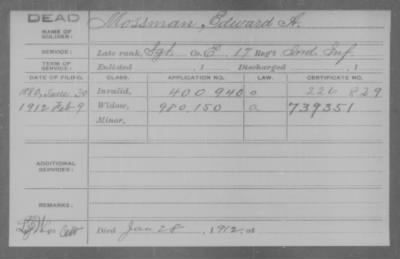 DEAD
NAME OF SOLDIER: Mossman, Edward A.
SERVICE: Late rank, Sgt. Co. E, 17 Reg't Ind. Inf.
TERM OF SERVICE: Enlisted , 1 Discharged , 1
DATE OF FILING. CLASS. APPLICATION NO. LAW. CERTIFICATE NO.
1880, June 30 Invalid, 400 940 226 829
1912 Feb-9 Widow, 980,150 a 739351
Minor,
ADDITIONAL SERVICES:
REMARKS:
Died Jan 28, 1912, at